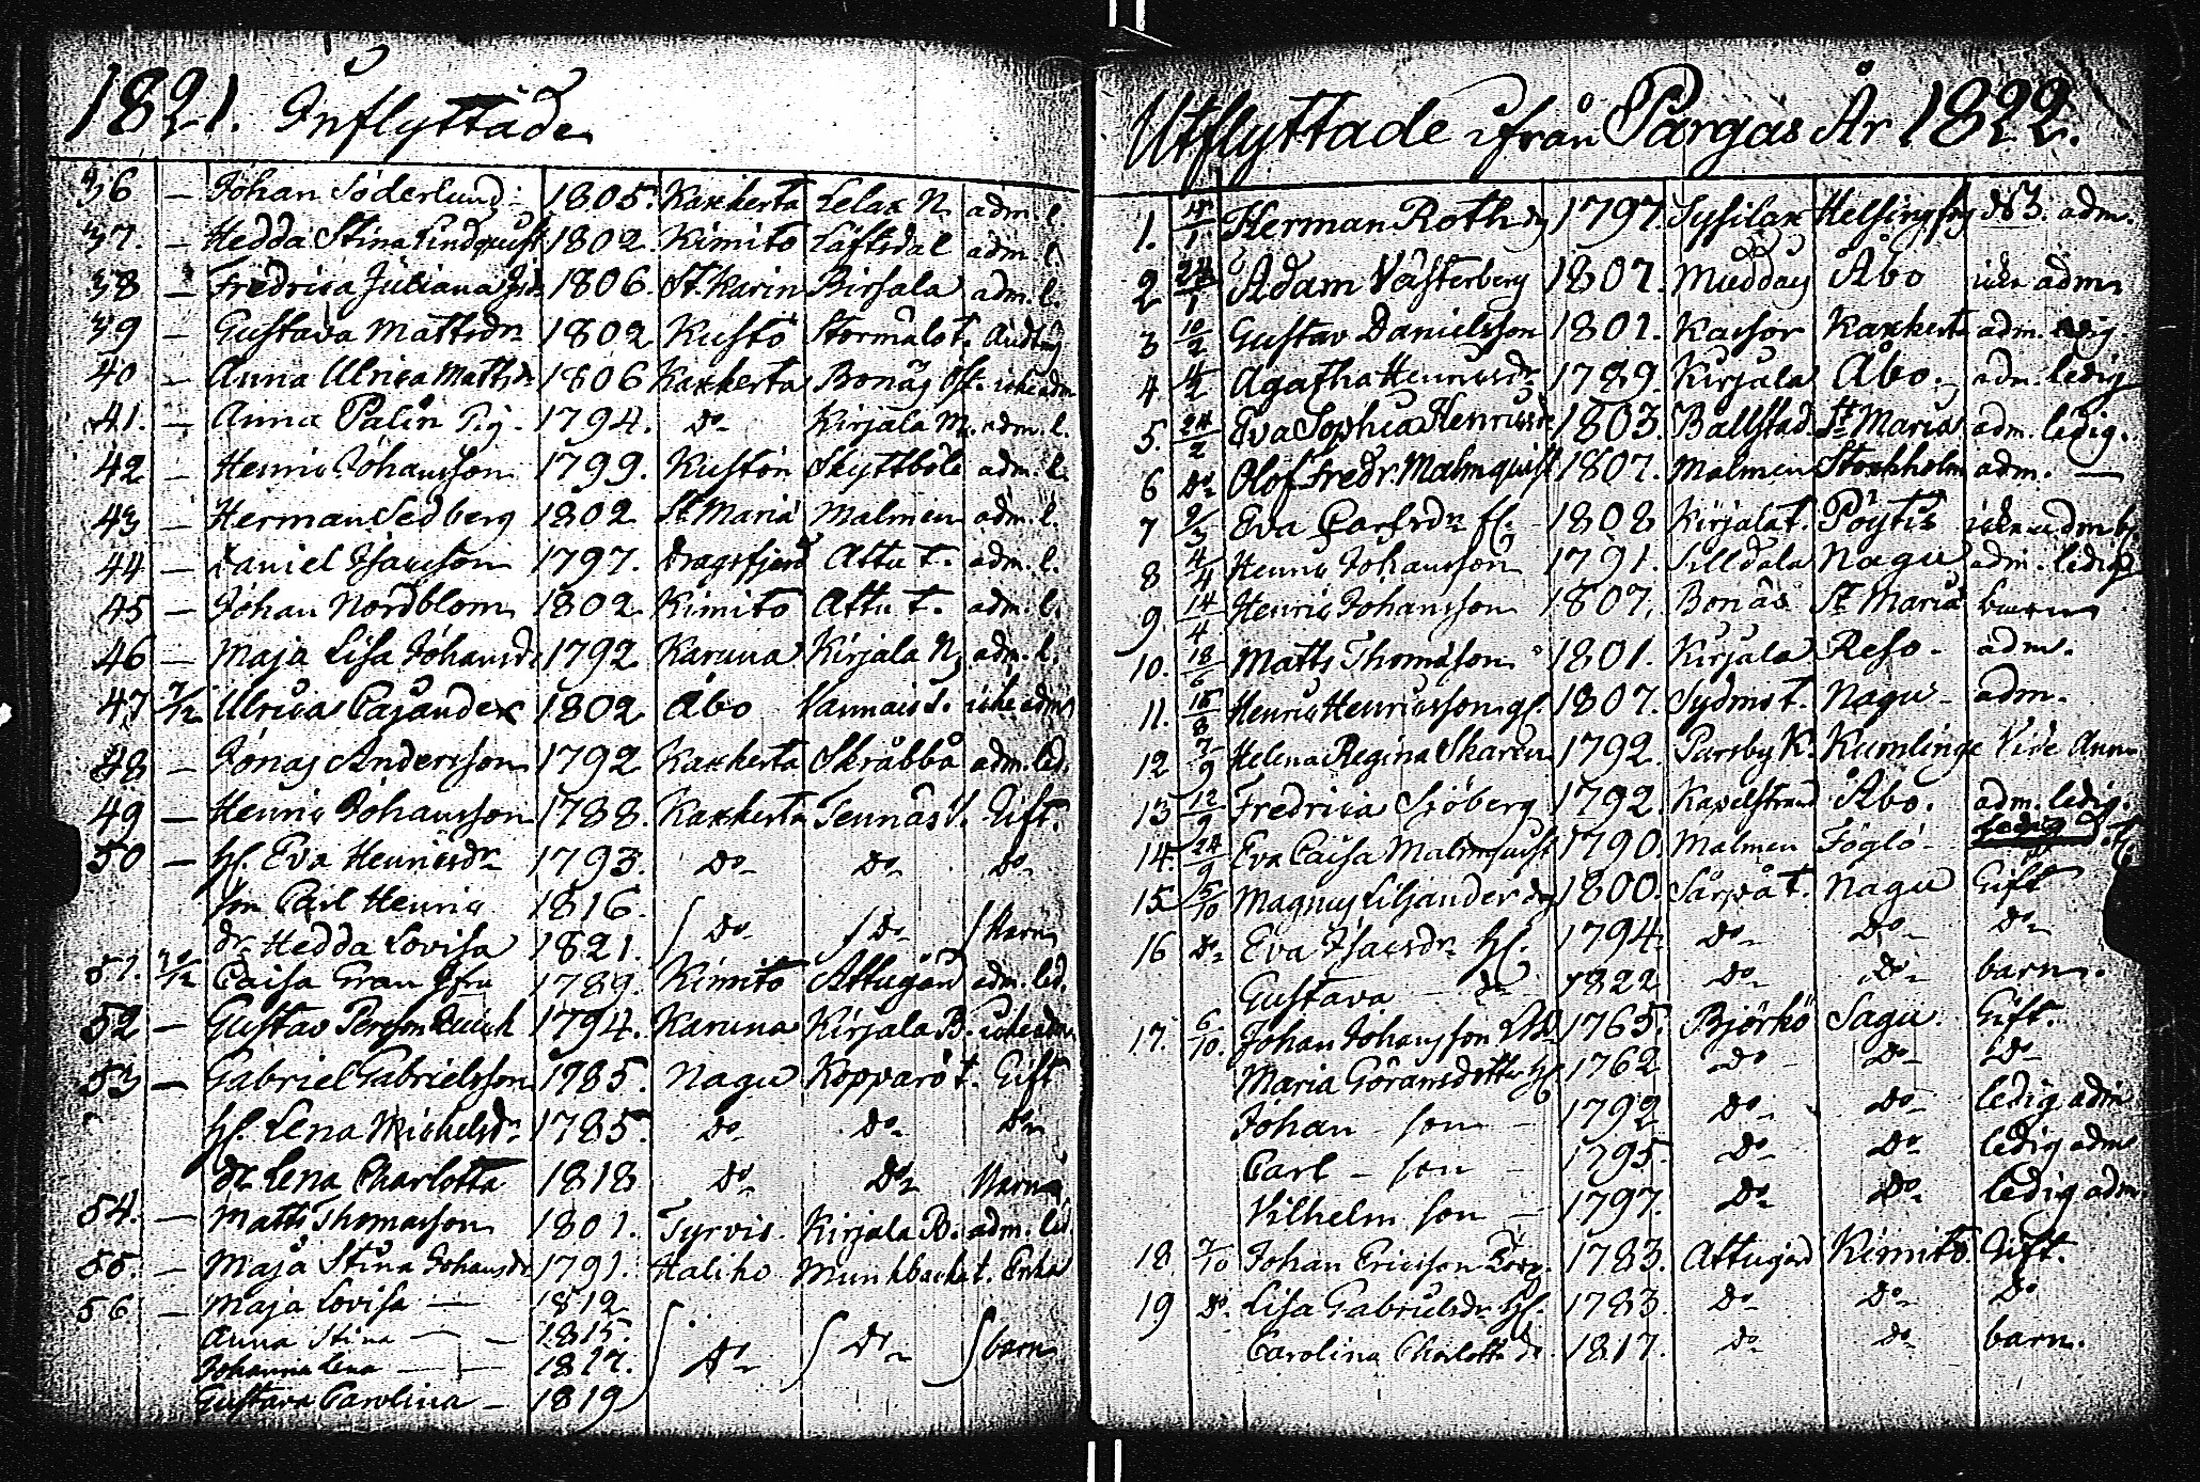 1821. Inflyttade
36 — Johan Söderlund 1805. Kaxkerta Lelax N. adm. l.
37. — Hedda Stina Lindqvist 1802. Kimito Läftsdal adm. l.
38 — Fredrica Juliana 1806. St. Karin Birsala adm. l.
39 — Gustava Mattsdr 1802 Kustö Stormälö t.
40 — Anna Ulrica Mattsdr 1806 Kaxkerta Bonäs icke adm
41. — Anna Palin Pig. 1794. do Kirjala M. adm. l.
42 — Henric Johansson 1799. Kustön Skyttböle adm. l.
43 — Herman Sedberg 1802 St Maria Malmen adm. l.
44 — Daniel Isacsson 1797. Dragsfjerd Attu t. adm. l.
45 — Johan Nordblom 1802 Kimito Attu t. adm. l.
46 — Maja Lisa Johansdr 1792 Karuna Kirjala N. adm. l.
47 7/12 Ulrica Pajander 1802 Åbo Vannais icke adm
48 — Jonas Andersson 1792 Kaxkerta Skråbbå adm. led.
49 — Henric Johansson 1788. Kaxkerta Tennäs Gift.
50 — H. Eva Henricsdr 1793. do do do
son Carl Henric 1816.
dr Hedda Lovisa 1821. do do Barn
51. Caisa Gran Jfru 1789. Kimito Attugård adm. led.
52 — Gustav Persson 1794. Karuna Kirjala B. icke adm
53 — Gabriel Gabrielsson 1785. Nagu Kopparö t. Gift
H. Lena Michelsdr 1785. do do do
dr Lena Charlotta 1818 do do Barn
54. — Matts Thomasson 1801. Tyrvis. Kirjala B. adm. led.
55. — Maja Stina Johansdr 1791. Haliko Munkbacka t. Enka
56. — Maja Lovisa — 1812
Anna Stina — 1815.
Johanna Lena — 1817. do do barn
Gustava Carolina — 1819
Utflyttade ifrån Pargas År 1822.
1. Herman Roth dg 1797. Sysilax Helsingfors No 3. adm.
2 24/1 Adam Västerberg 1807. Muddais Åbo icke adm
3 10/2 Gustav Danielsson 1801. Kassor Kaxkerta adm. ledig.
4 Agatha Henricsdr 1789. Kirjala Åbo. adm. ledig
5. 24/2 Eva Sophia Henricsdr 1803. Bällstad. St Maria adm. ledig.
6 do Olof Fredr. Malmqvist 1807. Malmen Stockholm adm. —
7 9/3 Eva Carlsdr fl. 1808 Kirjala t. Pöytis icke adm
8 4/4 Henric Johansson 1791. Silldala Nagu adm. ledig
9. 14/4 Henric Johansson 1807. Bonäs St Maria barn
10. 18/6 Matts Thomasson 1801. Kirjala Reso adm.
11. 16/8 Henric Henricsson gs. 1807. Sydmo t. Nagu adm.
12 7/9 Helena Regina Skarin 1792. Parsby K. Kumlinge Vide Ann
13 12/9 Fredrica Sjöberg 1792. Kapelstrand Åbo. adm. ledig.
14. 24/9 Eva Caisa Malmqvist 1790. Malmen Föglö
15 5/10 Magnus Liljander dg 1800. Särpåt. Nagu Gift
16 do Eva Isacsdr H. 1794. do do do
Gustava — dr 1822 do do barn.
17. 6/10. Johan Johansson 1765. Björkö Sagu. Gift.
Maria Göransdotter H. 1762 do do do
Johan — son — 1792 do do ledig adm
Carl — son — 1795. do do ledig adm
Vilhelm son — 1797. do do ledig adm
18 7/10 Johan Ericsson Torp. 1783. Attugård Kimito. Gift.
19 do. Lisa Gabrielsdr H. 1783. do do do
Carolina Charlotta dr 1817. do do barn.